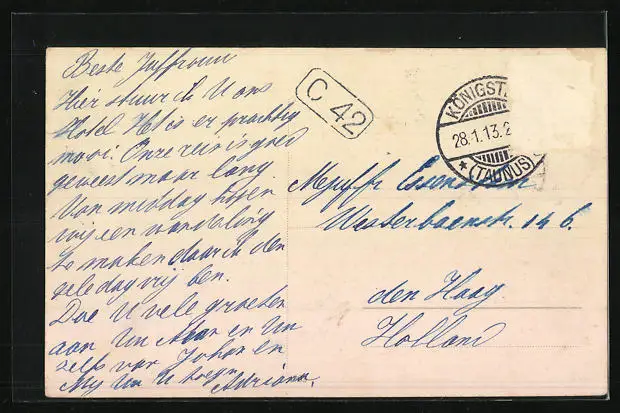 Beste Juffrouw
Hier stuur ik U ons
Hotel Het is er prachtig
mooi. Onze reis is goed
geweest maar lang.
Van middag hopen
wij een wandeling
te maken daar ik den
heele dag vrij ben.
Doe U vele groeten
aan Uw Man en Uw
zelf van Johan en
Adriana.
C 42
KÖNIGST
28.1.13.
* (TAUNUS)
Mejuffr
Westerbaenstr. 146.
den Haag
Holland